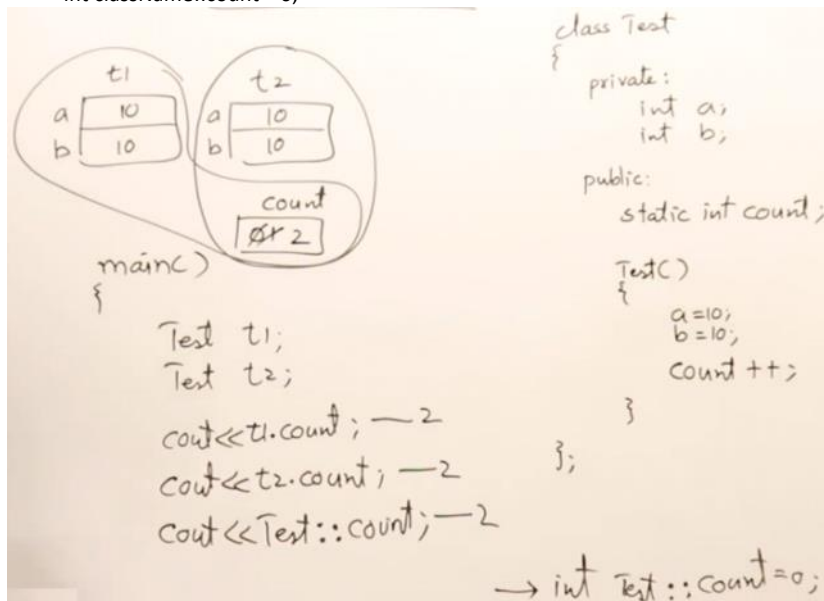 t1 t2
a 10 a 10
b 10 b 10
count
2
main()
{
Test t1;
Test t2;
cout<<t1.count; — 2
cout<<t2.count; — 2
cout<<Test::count; — 2
class Test
{
private:
int a;
int b;
public:
static int count;
Test()
{
a=10;
b=10;
count ++;
}
};
→ int Test::count=0;